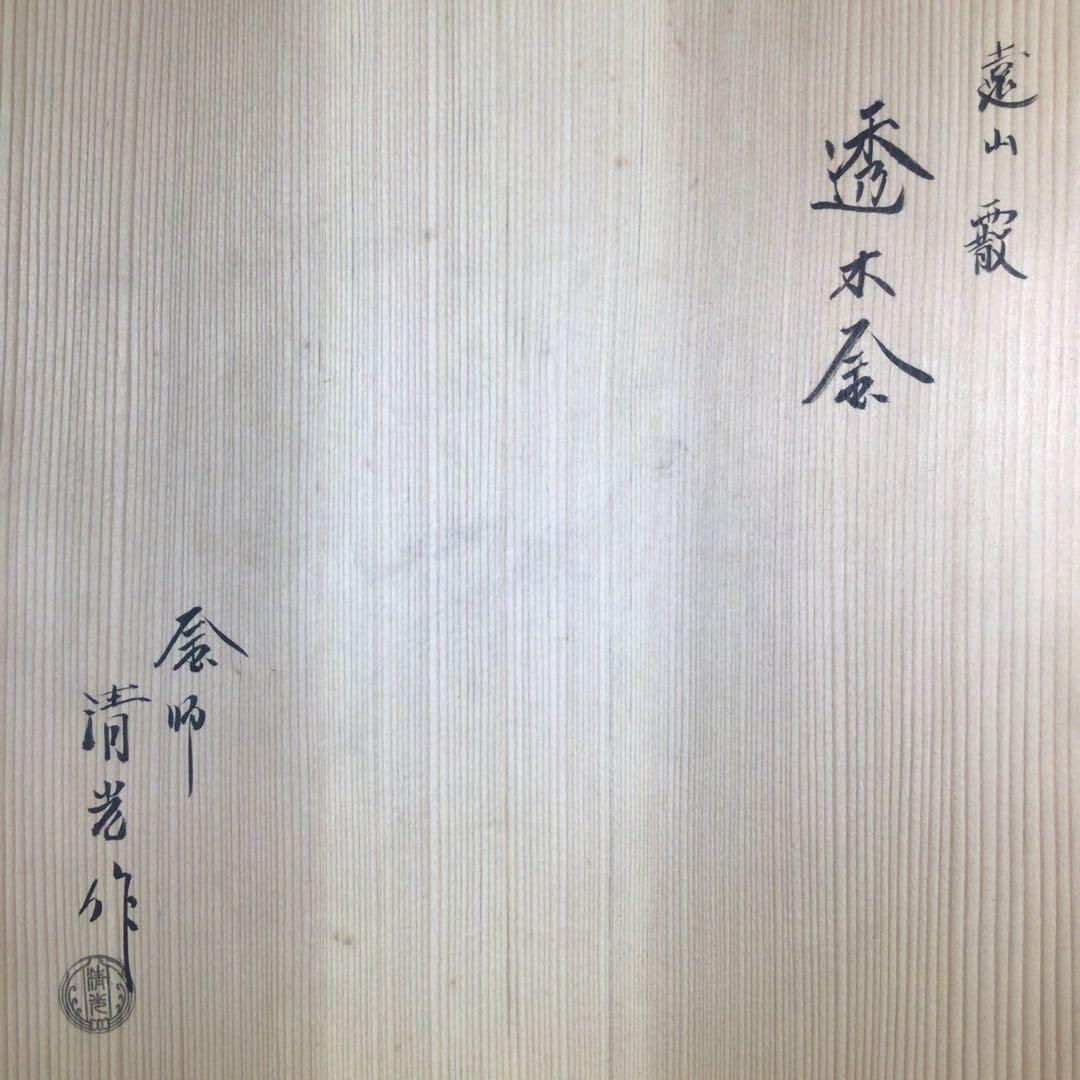 遠山霰
透木釜
釜師
清光作
清光